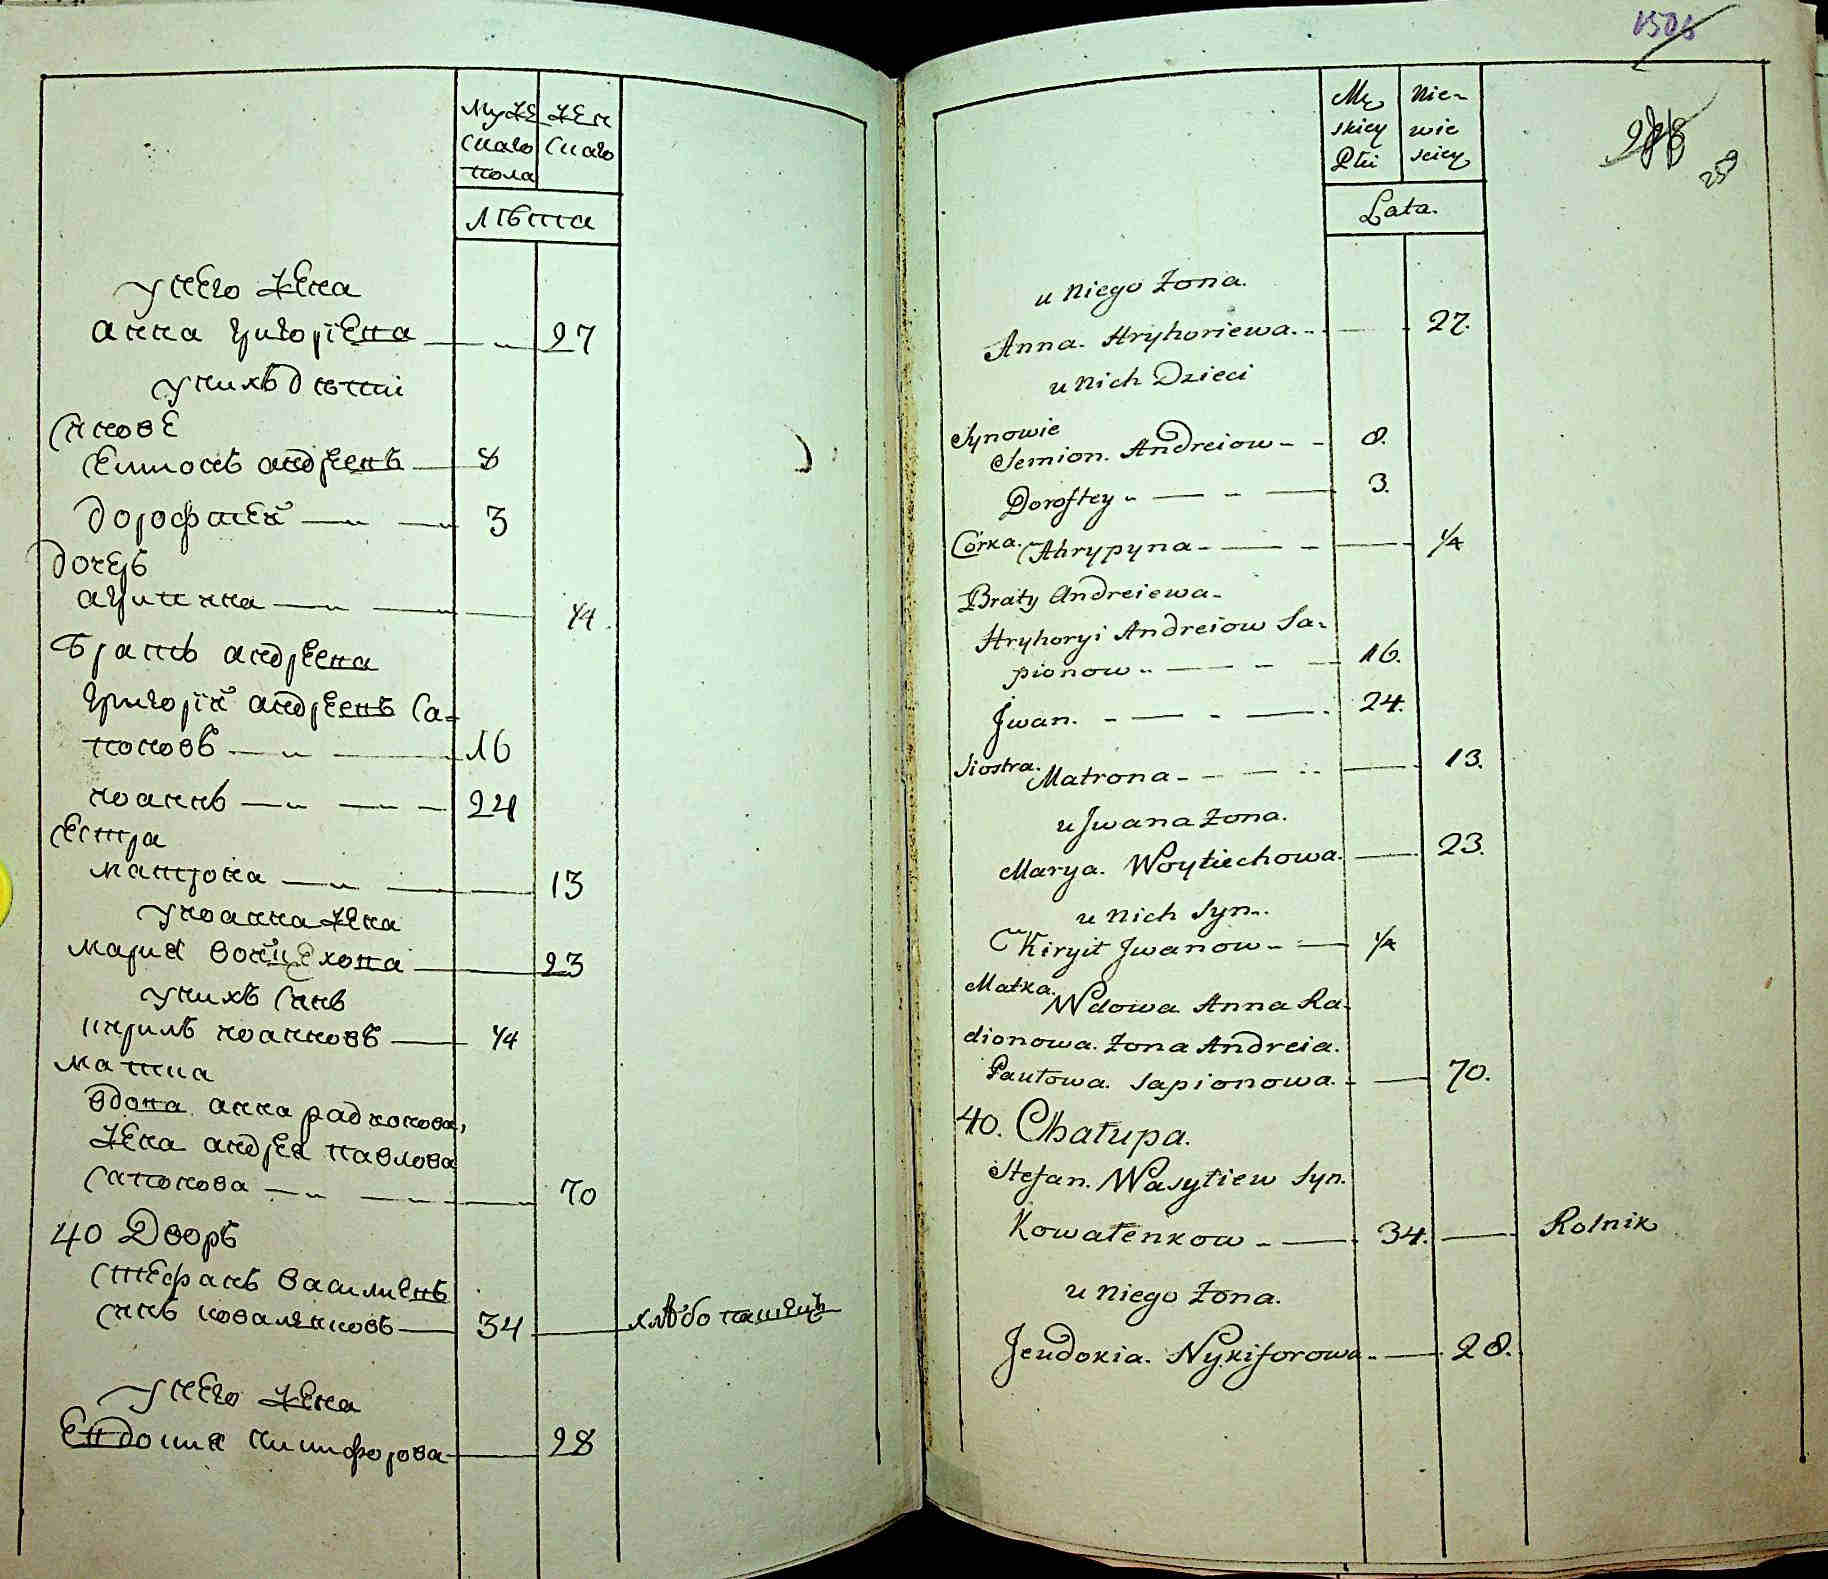 Муже
скаго
пола
Жен
скаго
Лѣта
у него жена
анна григорієва — „ 27
у нихъ дѣти
Сынове
Семионъ андреевъ — 8
дорофтей — „ — 3
дочерь
агрипина — „ — 1/4.
Братъ андреева
григорій андреевъ Са-
поновъ — „ — 16
иоаннъ — „ — 24
сестра
матрона — „ — 13
у иоанна жена
мария войцехова — 23
у нихъ Сынъ
кирилъ иоанновъ — 1/4
матка
вдова анна радионова,
жена андрея павлова
сапонова — „ — 70
40 Дворъ
Стефанъ василиевъ
сынъ коваленковъ — 34 — хлѣбопашецъ
у него жена
Евдокия никифорова — 28
1506
Mę
skiey
Płci
Nie-
wie
sciey
Lata.
288
259
u Niego Żona.
Anna. Hryhoriewa. — 27.
u Nich Dzieci
Synowie
Semion. Andreiow — 8.
Doroftey „ — „ — 3.
Córka. Ahrypyna — — 1/4
Braty Andreiewa-
Hryhoryi Andreiow Sa-
pionow „ — „ — 16.
Jwan. — — 24.
Siostra. Matrona — — 13.
u Jwana Żona.
Marya. Woytiechowa. — 23.
u Nich Syn..
Kiryił Jwanow — 1/4
Matka.
Wdowa Anna Ra-
dionowa. Żona Andreia.
Pawłowa. Sapionowa. — 70.
40. Chałupa.
Stefan. Wasyliew Syn.
Kowalenkow — 34. — Rolnik
u Niego Żona.
Jeudokia. Nykiforowa — 28.